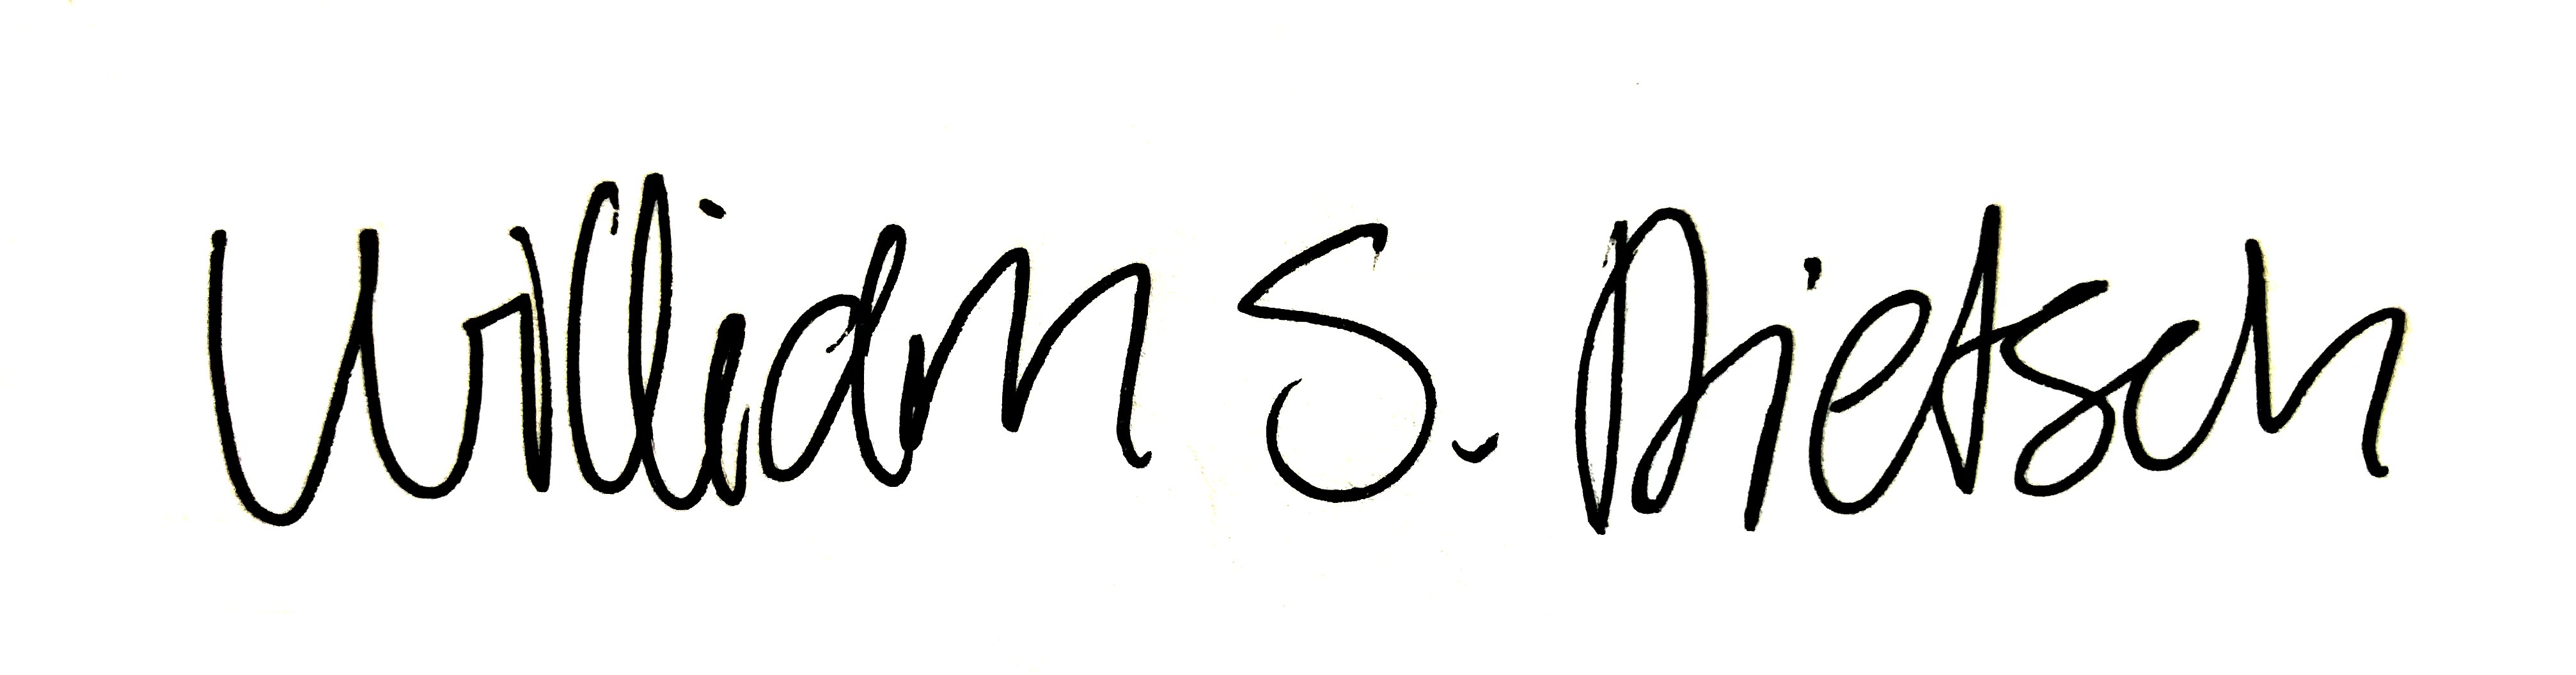 William S. Dietsch